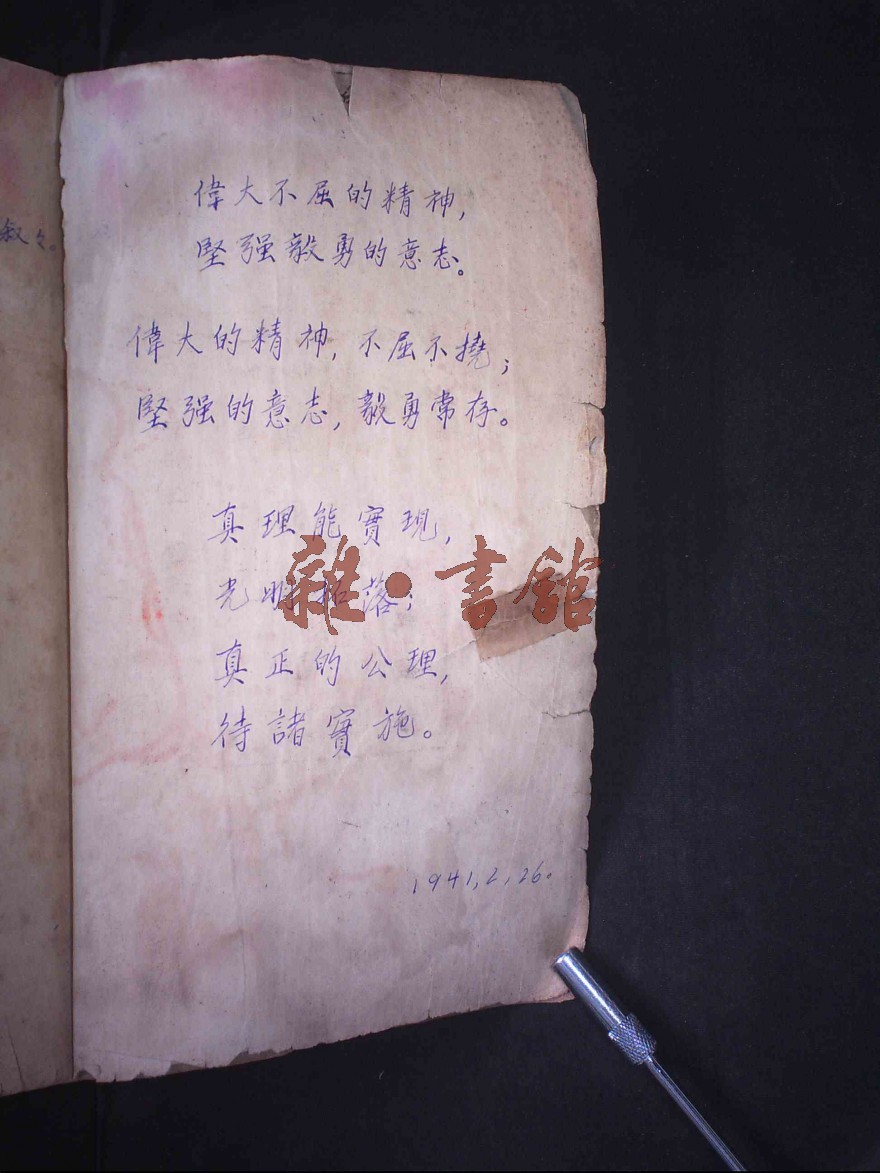 叙々。
偉大不屈的精神,
堅强毅勇的意志。
偉大的精神,不屈不撓;
堅强的意志,毅勇常存。
真理能實現,
光明磊落;
真正的公理,
待諸實施。
1941,2,26。
雜·書館